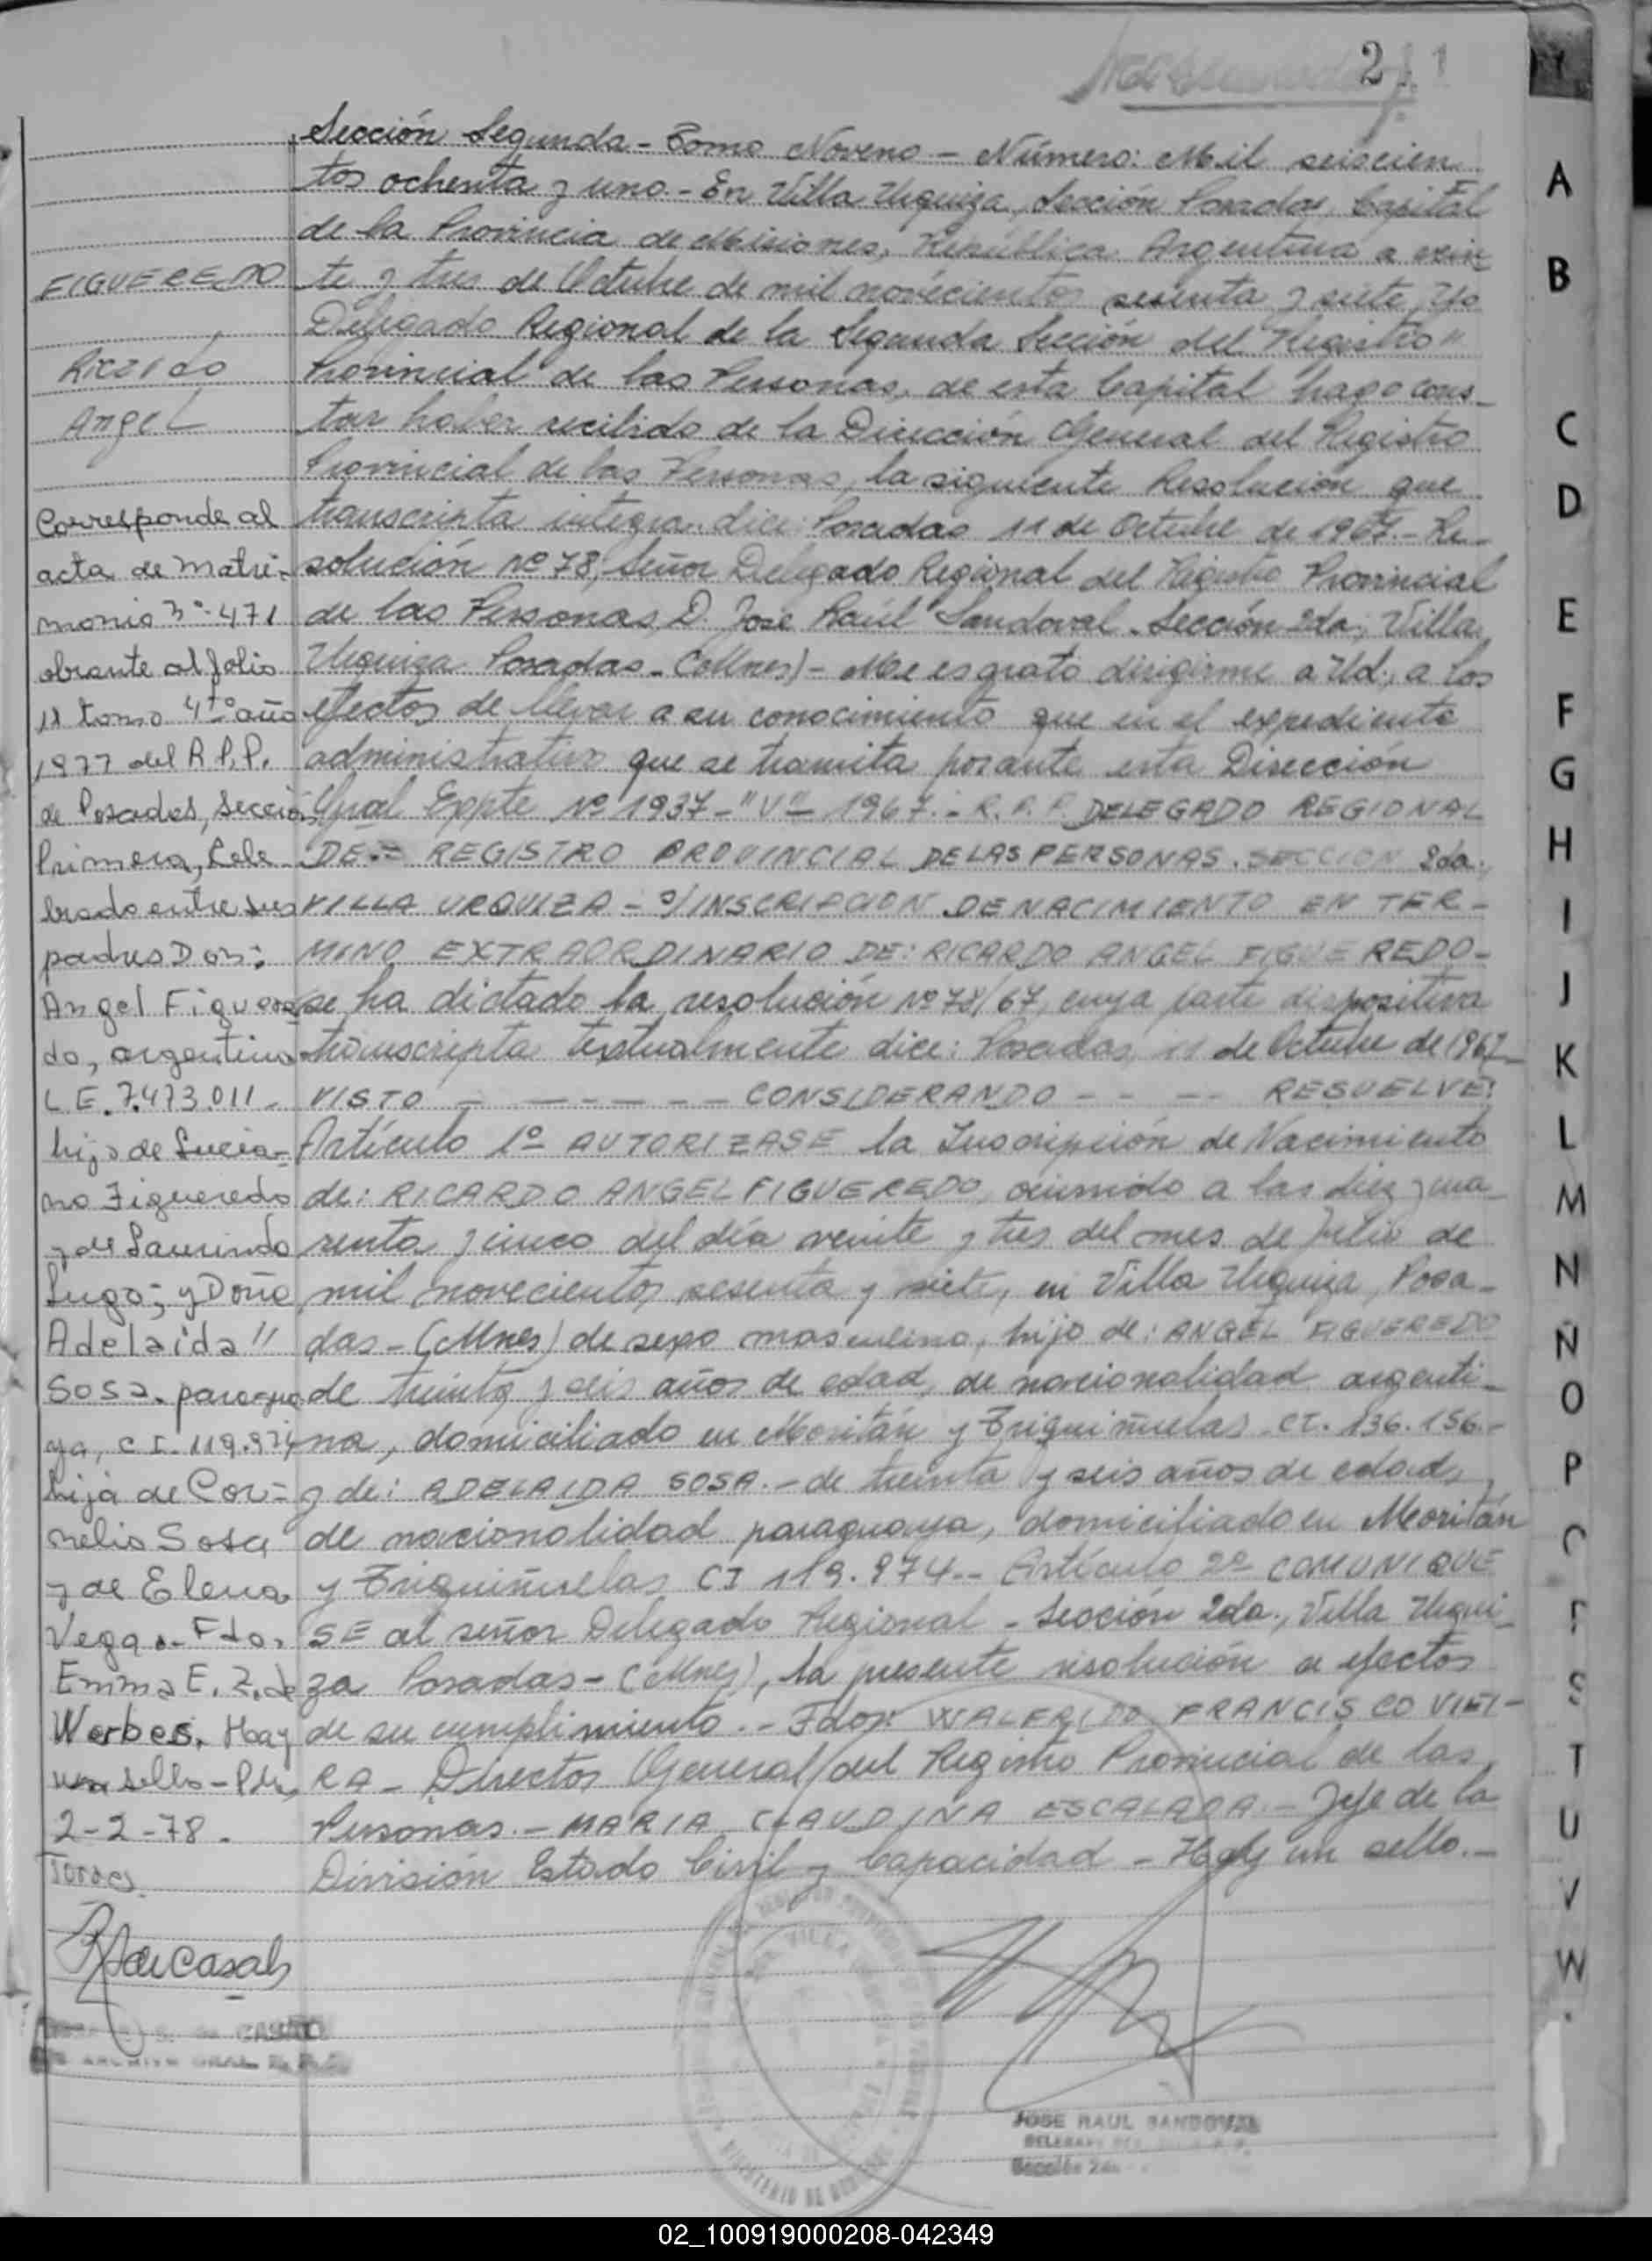 21
Sección Segunda - Tomo Noveno - Número: Mil seiscien
tos ochenta y uno. - En Villa Urquiza, Sección Posadas, Capital
de la Provincia de Misiones, República Argentina a vein
te y tres de Octubre de mil novecientos sesenta y siete, Yo
Delegado Regional de la Segunda Sección del Registro "
Provincial de las Personas, de esta Capital hago cons-
tar haber recibido de la Dirección General del Registro
Provincial de las Personas, la siguiente Resolución que
transcripta integra dice: Posadas 11 de Octubre de 1967. - Re-
solución Nº 78, Señor Delegado Regional del Registro Provincial
de las Personas, D. José Raúl Sandoval. Sección 2da, Villa
Urquiza Posadas - (Mnes) - Me es grato dirigirme a Ud., a los
efectos de llevar a su conocimiento que en el expediente
administrativo que se tramita por ante esta Dirección
Gral Eppte Nº 1937 - "V" - 1967. - R.P.P. DELEGADO REGIONAL
DEL REGISTRO PROVINCIAL DE LAS PERSONAS. SECCION 2da.
VILLA URQUIZA - S/INSCRIPCION DE NACIMIENTO EN TER-
MINO EXTRAORDINARIO DE: RICARDO ANGEL FIGUEREDO -
se ha dictado la resolución Nº 78/67, cuya parte dispositiva
transcripta textualmente dice: Posadas, 11 de Octubre de 1967
VISTO - - - - - - CONSIDERANDO - - - - RESUELVE:
Artículo 1º AUTORIZASE la Inscripción de Nacimiento
de: RICARDO ANGEL FIGUEREDO, ocurrido a las diez y cua-
renta y cinco del día veinte y tres del mes de Julio de
mil novecientos sesenta y siete, en Villa Urquiza, Posa-
das - (Mnes) de sexo masculino, hijo de: ANGEL FIGUEREDO
de treinta y seis años de edad, de nacionalidad argenti-
na, domiciliado en Moritán y Triquiñuelas CI. 136.156. -
y de: ADELAIDA SOSA. - de treinta y seis años de edad,
de nacionalidad paraguaya, domiciliado en Moritán
y Triquiñuelas CI 119.974 - Artículo 2º COMUNIQUE
SE al señor Delegado Regional - Sección 2da., Villa Urqui-
za Posadas - (Mnes), la presente resolución a efectos
de su cumplimiento. - Fdos: WALFRIDO FRANCISCO VIEI-
RA - Director General del Registro Provincial de las
Personas. - MARIA CLAUDINA ESCALADA. - Jefe de la
División Estado Civil y Capacidad - Hay un sello. -
FIGUEREDO
Ricardo
Angel
Corresponde al
acta de matri-
monio nº 471
obrante al folio
11 tomo 4to año
1977 del R.P.P.
de Posadas, Sección
Primera, Cele
brado entre sus
padres Don:
Angel Figuere
do, argentino
L.E. 7.473.011 -
hijo de Lucia-
no Figueredo
y de Laurinda
Lugo; y Doña
Adelaida "
Sosa. paragua
ya, C.I. 119.974
hija de Cor-
nelio Sosa
y de Elena
Vega - Fdo.
Emma E. Z. de
Werbes. Hay
un sello - Pdas,
2-2-78.
JOSE RAUL SANDOVAL
Sección 2da
A
B
C
D
E
F
G
H
I
J
K
L
M
N
Ñ
O
P
S
T
U
V
W
02_100919000208-042349